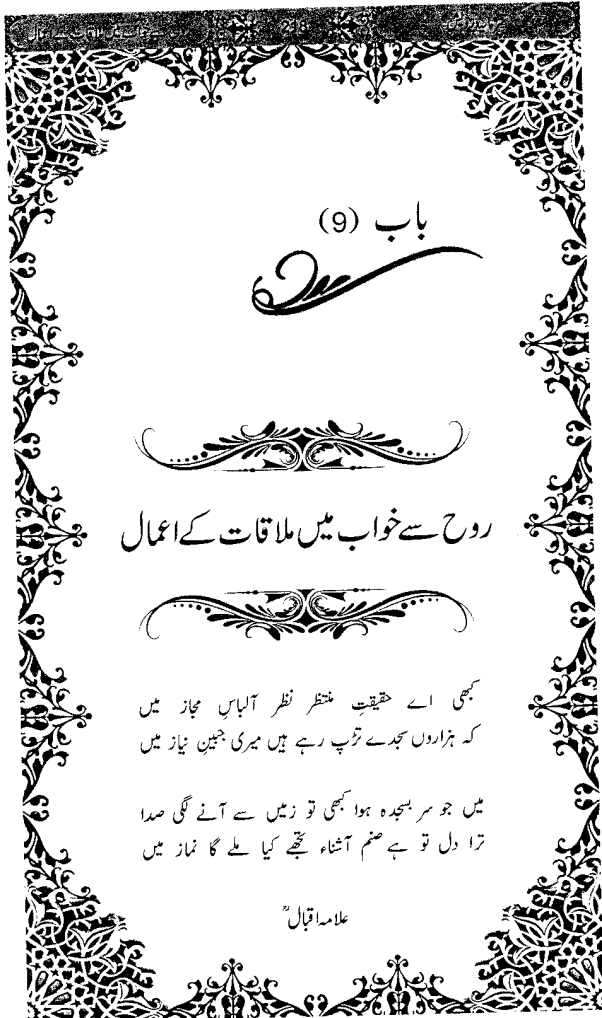 218
روح سے خواب میں ملاقات کے اعمال
باب (9)
روح سے خواب میں ملاقات کے اعمال
کبھی اے حقیقتِ منتظر نظر آلباسِ مجاز میں
کہ ہزاروں سجدے تڑپ رہے ہیں میری جبینِ نیاز میں
میں جو سر بسجدہ ہوا کبھی تو زمیں سے آنے لگی صدا
ترا دل تو ہے صنم آشناء تجھے کیا ملے گا نماز میں
علامہ اقبالؒ